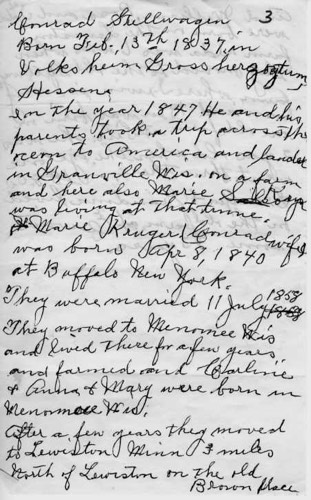 Conrad Stellwagen 3
Born Feb. 13th 1837. in
Volksheim Grossherzogtum,
Hessen.
In the year 1847 He and his
parents took a trip across the
ocean to America and landed
in Granville Wis. on a farm
and here also Marie
was living at that time.
Marie Kruger (Conrad wife)
was born Apr 8, 1840
at Buffelo New York.
They were married 11 July 1858
They moved to Menomee Wis
and lived there for a few years
and farmed and Carline
& Anna & Mary were born in
Menomee Wis.
After a few years they moved
to Lewiston Minn 3 miles
North of Lewiston on the old
Brown place